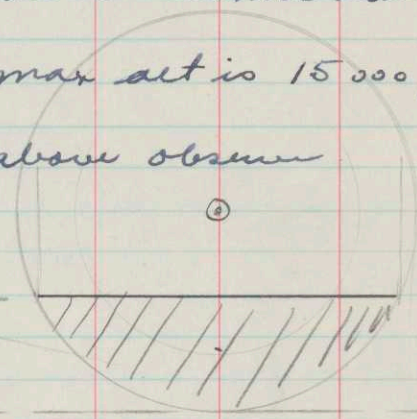 max alt is 15000
above observer